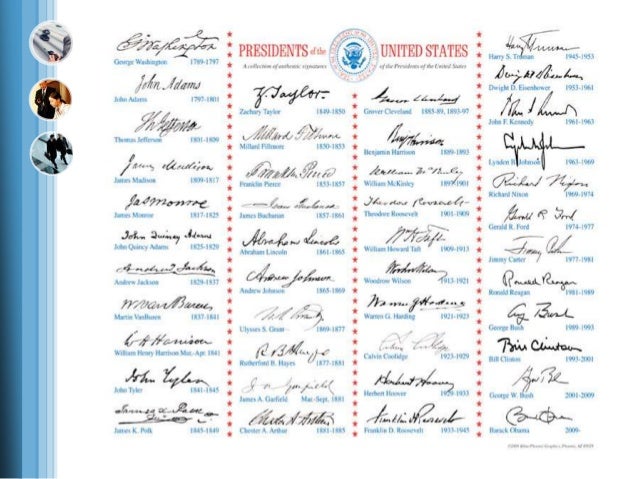 PRESIDENTS of the UNITED STATES
A collection of authentic signatures of the Presidents of the United States
G Washington
George Washington 1789-1797
John Adams
John Adams 1797-1801
Th Jefferson
Thomas Jefferson 1801-1809
James Madison
James Madison 1809-1817
Jas Monroe
James Monroe 1817-1825
John Quincy Adams
John Quincy Adams 1825-1829
Andrew Jackson
Andrew Jackson 1829-1837
M Van Buren
Martin VanBuren 1837-1841
W H Harrison
William Henry Harrison Mar.-Apr. 1841
John Tyler
John Tyler 1841-1845
James K Polk
James K. Polk 1845-1849
Z. Taylor
Zachary Taylor 1849-1850
Millard Fillmore
Millard Fillmore 1850-1853
Franklin Pierce
Franklin Pierce 1853-1857
James Buchanan
James Buchanan 1857-1861
Abraham Lincoln
Abraham Lincoln 1861-1865
Andrew Johnson
Andrew Johnson 1865-1869
U.S. Grant
Ulysses S. Grant 1869-1877
R B Hayes
Rutherford B. Hayes 1877-1881
J A Garfield
James A. Garfield Mar.-Sept. 1881
Chester A Arthur
Chester A. Arthur 1881-1885
Grover Cleveland
Grover Cleveland 1885-89, 1893-97
Benj Harrison
Benjamin Harrison 1889-1893
William McKinley
William McKinley 1897-1901
Theodore Roosevelt
Theodore Roosevelt 1901-1909
W H Taft
William Howard Taft 1909-1913
Woodrow Wilson
Woodrow Wilson 1913-1921
Warren G Harding
Warren G. Harding 1921-1923
Calvin Coolidge
Calvin Coolidge 1923-1929
Herbert Hoover
Herbert Hoover 1929-1933
Franklin D Roosevelt
Franklin D. Roosevelt 1933-1945
Harry Truman
Harry S. Truman 1945-1953
Dwight D Eisenhower
Dwight D. Eisenhower 1953-1961
John F. Kennedy 1961-1963
Lyndon B. Johnson 1963-1969
Richard Nixon
Richard Nixon 1969-1974
Gerald R. Ford
Gerald R. Ford 1974-1977
Jimmy Carter
Jimmy Carter 1977-1981
Ronald Reagan
Ronald Reagan 1981-1989
G Bush
George Bush 1989-1993
Bill Clinton
Bill Clinton 1993-2001
George W. Bush 2001-2009
Barack Obama 2009-